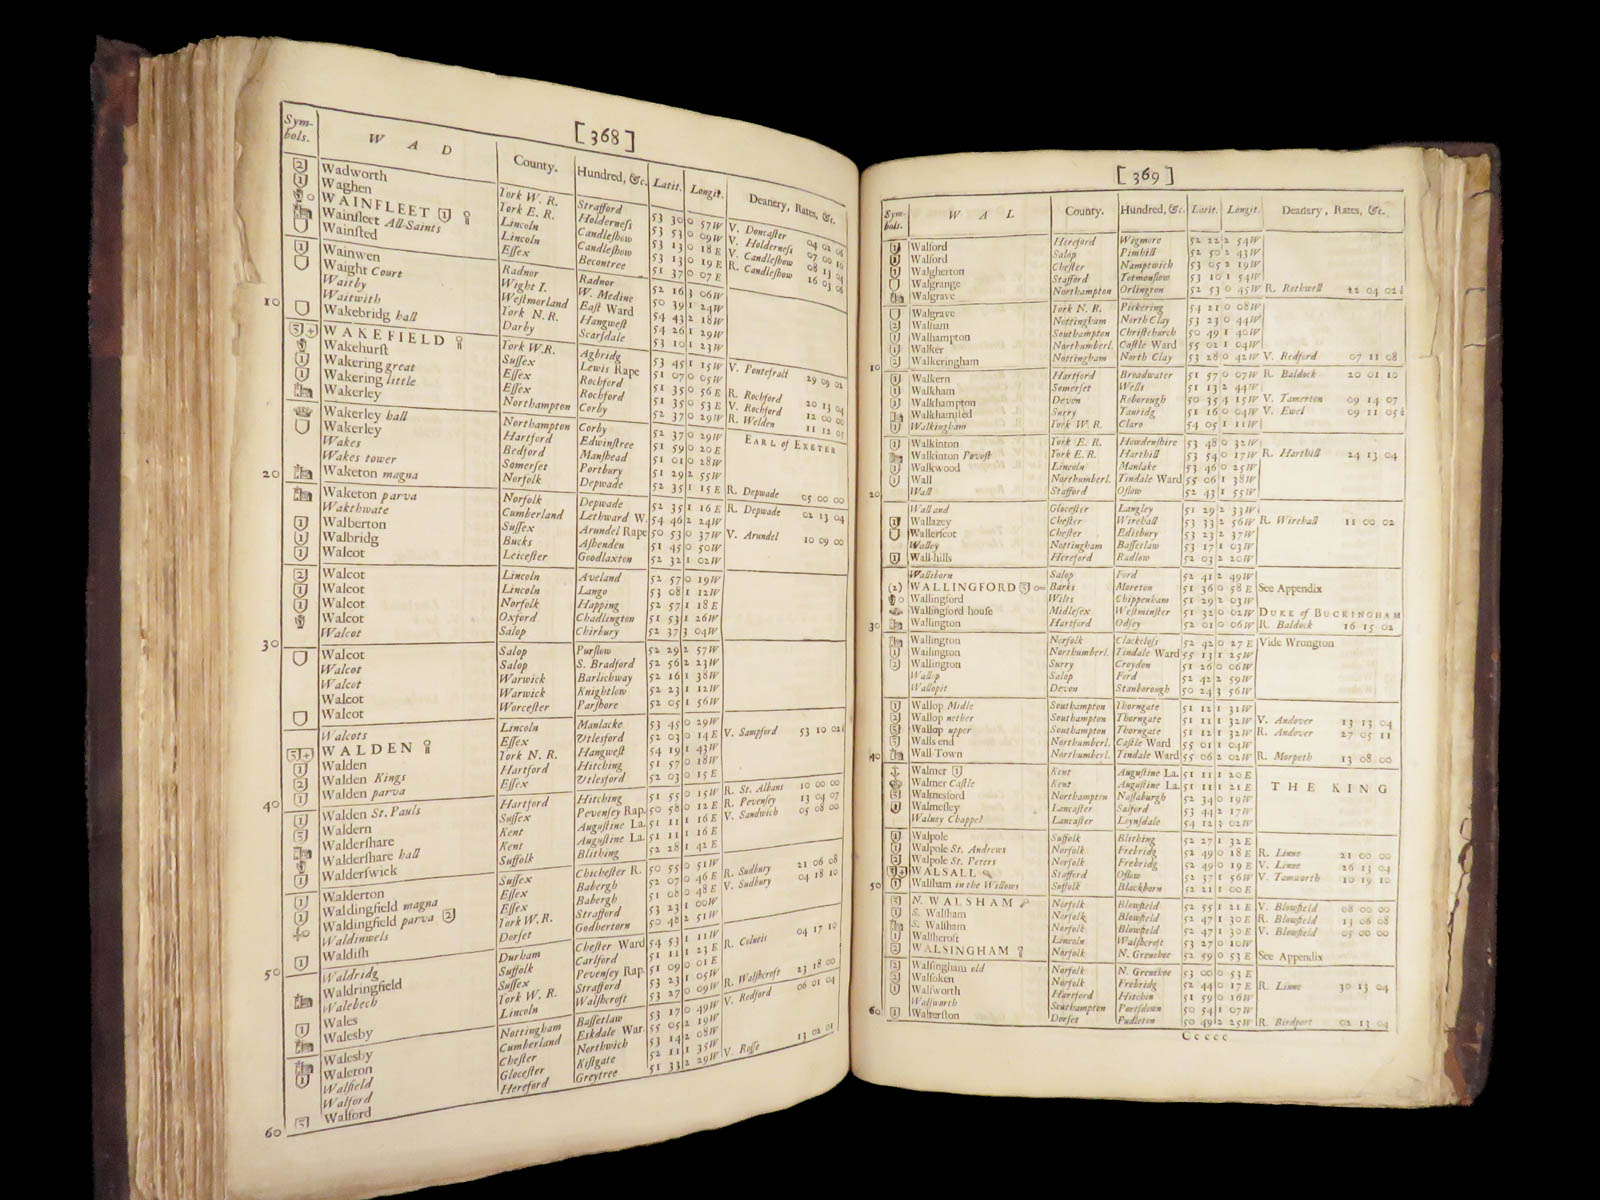 [ 368 ]
Sym-bols. W A D County. Hundred, &c. Latit. Longit. Deanery, Rates, &c.
Wadworth York W. R. Strafford 53 30 0 57W V. Doncaſter 04 02 06
Waghen York E. R. Holderneſs 53 53 0 09W V. Holderneſs 07 00 10
WAINFLEET Lincoln Candleſhow 53 13 0 18 E V. Candleſhow 08 13 04
Wainfleet All-Saints Lincoln Candleſhow 53 13 0 19 E R. Candleſhow 16 03 06
Wainſted Eſſex Becontree 51 37 0 07 E
Wainwen Radnor Radnor 52 16 3 06W
Waight Court Wight I. W. Medine 50 39 1 24W
Waitby Weſtmorland Eaſt Ward 54 43 2 18W
Waitwith York N. R. Hangweſt 54 26 1 29W
10 Wakebridg hall Darby Scarſdale 53 10 1 23W
WAKEFIELD York W.R. Agbridg 53 45 1 15W V. Pontefract 29 09 02
Wakehurſt Suſſex Lewis Rape 51 07 0 05W
Wakering great Eſſex Rochford 51 35 0 56 E R. Rochford 20 13 04
Wakering little Eſſex Rochford 51 35 0 53 E V. Rochford 12 00 00
Wakerley Northampton Corby 52 37 0 29W R. Welden 11 12 01
Wakerley hall Northampton Corby 52 37 0 29W EARL of EXETER
Wakerley Hartford Edwinſtree 51 59 0 20 E
Wakes Bedford Manſhead 51 01 0 28W
Wakes tower Somerſet Portbury 51 29 2 55W
20 Waketon magna Norfolk Depwade 52 35 1 15 E R. Depwade 05 00 00
Waketon parva Norfolk Depwade 52 35 1 16 E R. Depwade 02 13 04
Wakthwate Cumberland Lethward W. 54 46 2 24W
Walberton Suſſex Arundel Rape 50 53 0 37W V. Arundel 10 09 00
Walbridg Bucks Aſhenden 51 45 0 50W
Walcot Leiceſter Goodlaxton 52 32 1 02W
Walcot Lincoln Aveland 52 57 0 19W
Walcot Lincoln Lango 53 08 1 12W
Walcot Norfolk Happing 52 57 1 18 E
Walcot Oxford Chadlington 51 53 1 26W
30 Walcot Salop Chirbury 52 37 3 04W
Walcot Salop Purſlow 52 29 2 57W
Walcot Salop S. Bradford 52 56 2 23W
Walcot Warwick Barlichway 52 16 1 38W
Walcot Warwick Knightlow 52 23 1 12W
Walcot Worceſter Parſhore 52 05 1 56W
Walcots Lincoln Manlacke 53 45 0 29W
WALDEN Eſſex Vtlesford 52 03 0 14 E V. Sampford 53 10 02
Walden York N. R. Hangweſt 54 19 1 43W
Walden Kings Hartford Hitching 51 57 0 18W
40 Walden parva Eſſex Vtlesford 52 03 0 15 E
Walden St. Pauls Hartford Hitching 51 55 0 15W R. St. Albans 10 00 00
Waldern Suſſex Pevenſey Rap. 50 58 0 12 E R. Pevenſey 13 04 07
Walderſhare Kent Auguſtine La. 51 11 1 16 E V. Sandwich 05 08 00
Walderſhare hall Kent Auguſtine La. 51 11 1 16 E
Walderſwick Suffolk Blithing 52 28 1 42 E
Walderton Suſſex Chicheſter R. 50 55 0 51W
Waldingfield magna Eſſex Babergh 52 07 0 46 E R. Sudbury 21 06 08
Waldingfield parva Eſſex Babergh 51 08 0 48 E V. Sudbury 04 18 10
Waldinwels York W.R. Strafford 53 23 1 00W
50 Waldiſh Dorſet Godhertorn 50 48 2 51W
Waldridg Durham Cheſter Ward 54 53 1 11W
Waldringfield Suffolk Carlford 51 11 1 23 E R. Colneis 04 17 10
Walebech Suſſex Pevenſey Rap. 51 09 0 01 E
Wales York W. R. Strafford 53 23 1 05W
Walesby Lincoln Walſhcroft 53 27 0 09W R. Walſhcroft 23 18 00
Walesby Nottingham Baſſetlaw 53 17 0 49W V. Redford 06 01 04
Waleton Cumberland Eſkdale War. 55 05 2 19W
Walfield Cheſter Northwich 53 14 2 08W
Walford Gloceſter Kiftgate 52 11 1 35W
60 Walford Hereford Greytree 51 33 2 29W V. Roſſe 13 02 01
[ 369 ]
Sym-bols. W A L County. Hundred, &c. Latit. Longit. Deanery, Rates, &c.
Walford Hereford Wigmore 52 22 2 54W
Walford Salop Pimhill 52 50 2 43W
Walgherton Cheſter Namptwich 53 05 2 19W
Walgrange Stafford Totmonſlow 53 10 1 54W
Walgrave Northampton Orlington 52 53 0 45W R. Rothwell 22 04 02
Walgrave York N. R. Pickering 54 21 0 08W
Walham Nottingham North Clay 53 23 0 44W
Walhampton Southampton Chriſtchurch 50 49 1 40W
Walker Northumberl. Caſtle Ward 55 02 1 04W
10 Walkeringham Nottingham North Clay 53 28 0 42W V. Redford 07 11 08
Walkern Hartford Broadwater 51 57 0 07W R. Baldock 20 01 10
Walkham Somerſet Wells 51 13 2 44W
Walkhampton Devon Roborough 50 35 4 15W V. Tamerton 09 14 07
Walkhamſted Surry Tanridg 51 16 0 04W V. Ewel 09 11 05
Walkingham York W. R. Claro 54 05 1 11W
Walkinton York E. R. Howdenſhire 53 48 0 32W
Walkinton Pavoſt York E. R. Harthill 53 54 0 17W R. Harthill 24 13 04
Walkwood Lincoln Manlake 53 46 0 25W
Wall Northumberl. Tindale Ward 55 06 1 38W
20 Wall Stafford Oflow 52 43 1 55W
Walland Gloceſter Langley 51 29 2 33W
Wallazey Cheſter Wirehall 53 33 2 56W R. Wirehall 11 00 02
Wallerſcot Cheſter Ediſbury 53 23 2 37W
Walley Nottingham Baſſetlaw 53 17 1 03W
Wall-hills Hereford Radlow 52 03 2 20W
Walliborn Salop Ford 52 41 2 49W
WALLINGFORD Barks Moreton 51 36 0 58 E See Appendix
Wallingford Wilts Chippenham 51 29 2 03W
Wallingford houſe Midleſex Weſtminſter 51 32 0 02W DUKE of BUCKINGHAM
30 Wallington Hartford Odſey 52 01 0 06W R. Baldock 16 15 02
Wallington Norfolk Clackcloſs 52 42 0 27 E Vide Wrongton
Wallington Northumberl. Tindale Ward 55 13 1 25W
Wallington Surry Croydon 51 26 0 06W
Wallop Salop Ford 52 42 2 59W
Wallopit Devon Stanborough 50 24 3 56W
Wallop Midle Southampton Thorngate 51 12 1 31W
Wallop nether Southampton Thorngate 51 11 1 32W V. Andover 13 13 04
Wallop upper Southampton Thorngate 51 12 1 32W R. Andover 27 05 11
Walls end Northumberl. Caſtle Ward 55 01 1 04W
40 Wall-Town Northumberl. Tindale Ward 55 06 2 02W R. Morpeth 13 08 00
Walmer Kent Auguſtine La. 51 11 1 20 E THE KING
Walmer Caſtle Kent Auguſtine La. 51 11 1 21 E
Walmesford Northampton Naſſaburgh 52 34 0 19W
Walmeſley Lancaſter Salford 53 44 2 17W
Walney Chappel Lancaſter Loynſdale 54 12 3 02W
Walpole Suffolk Blithing 52 27 1 32 E
Walpole St. Andrews Norfolk Frebridg 52 49 0 18 E R. Linne 21 00 00
Walpole St. Peters Norfolk Frebridg 52 49 0 19 E V. Linne 26 13 04
WALSALL Stafford Oflow 52 37 1 56W V. Tamworth 10 19 10
50 Walſham in the Willows Suffolk Blackborn 52 21 1 00 E
N. WALSHAM Norfolk Blowfield 52 55 1 21 E V. Blowfield 08 00 00
S. Walſham Norfolk Blowfield 52 47 1 30 E R. Blowfield 13 06 08
S. Walſham Norfolk Blowfield 52 47 1 30 E V. Blowfield 05 00 00
Walſhcroft Lincoln Walſhcroft 53 27 0 10W
WALSINGHAM Norfolk N. Grenehoe 52 59 0 53 E See Appendix
Walſingham old Norfolk N. Grenehoe 53 00 0 53 E
Walſoken Norfolk Frebridg 52 44 0 17 E R. Linne 30 13 04
Walſworth Hartford Hitchin 51 59 0 16W
Walſworth Southampton Portſdown 50 54 1 07W
60 Walterſton Dorſet Pudleton 50 49 2 25W R. Birdport 02 13 04
Ccccc